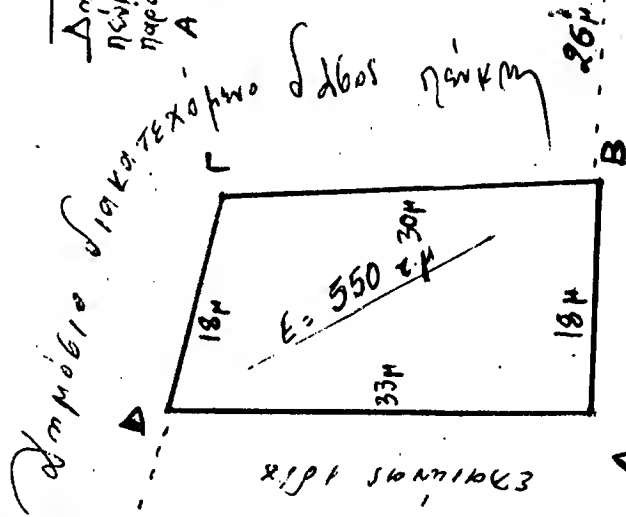 Δη
πεύ
παρ
Α
Δημόσιο διακατεχόμενο δάσος πεύκης
26μ
Γ
Β
Δ
18μ
30μ
Ε = 550 τ.μ
33μ
18μ
Α